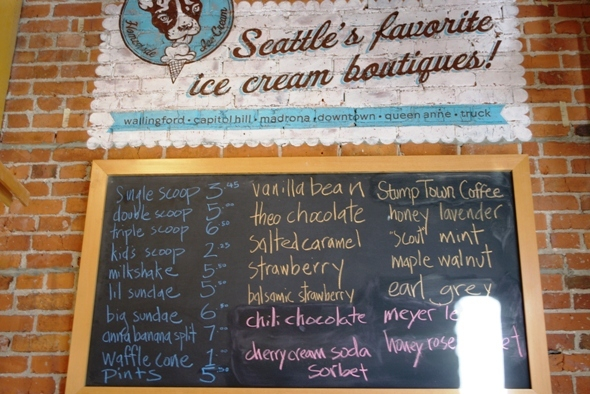 Homemade Ice Cream
Seattle's favorite
ice cream boutiques!
wallingford • capitol hill • madrona • downtown • queen anne • truck
single scoop 3.45
double scoop 5.00
triple scoop 6.50
kid's scoop 2.25
milkshake 5.50
lil sundae 5.50
big sundae 6.50
anna banana split 7
waffle cone 1
pints 5.50
vanilla bean
theo chocolate
salted caramel
strawberry
balsamic strawberry
chili chocolate
cherry cream soda
sorbet
Stump Town Coffee
honey lavender
"scout" mint
maple walnut
earl grey
meyer
honey rose